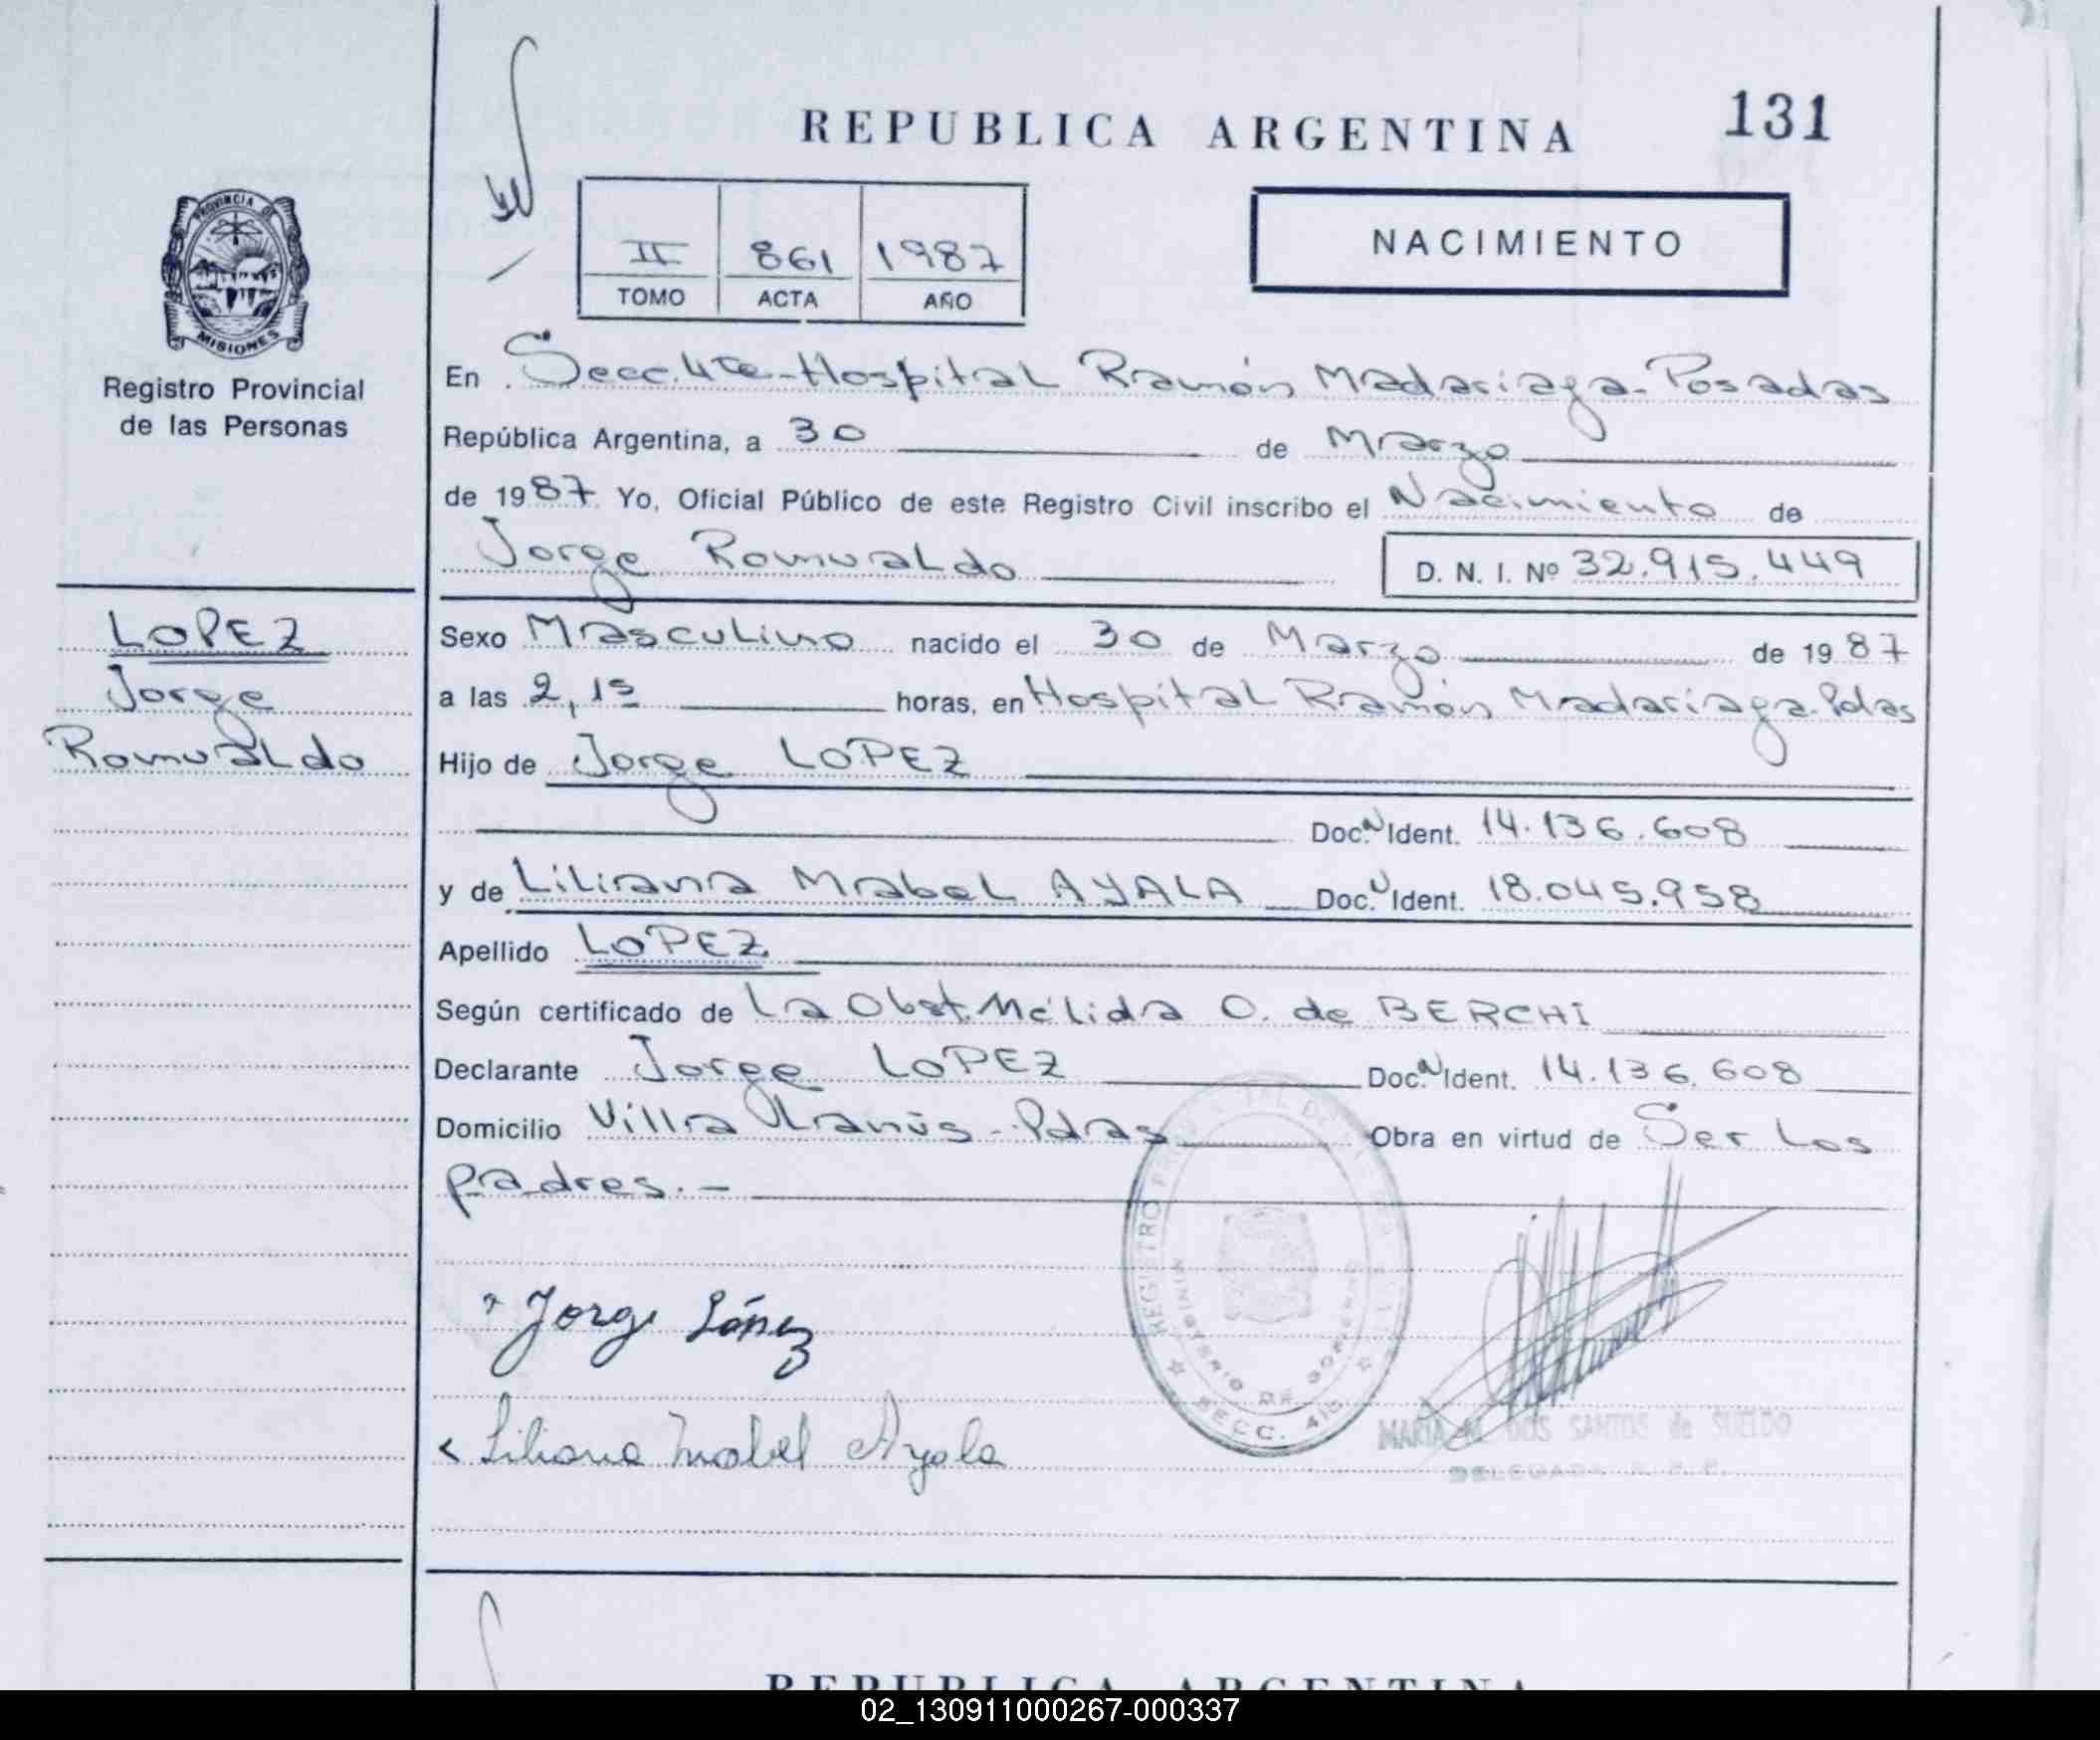 REPUBLICA ARGENTINA
131
PROVINCIA DE
MISIONES
Registro Provincial
de las Personas
II 861 1987
TOMO ACTA AÑO
NACIMIENTO
En Secc. 4te - Hospital Ramón Madariaga - Posadas
República Argentina, a 30 de Marzo
de 1987 Yo, Oficial Público de este Registro Civil inscribo el Nacimiento de
Jorge Romualdo D. N. I. Nº 32.915.449
LOPEZ
Jorge
Romualdo
Sexo Masculino nacido el 30 de Marzo de 1987
a las 2,15 horas, en Hospital Ramón Madariaga - Pdas
Hijo de Jorge LOPEZ
Doc. N Ident. 14.136.608
y de Liliana Mabel AYALA Doc. N Ident. 18.045.958
Apellido LOPEZ
Según certificado de La Obst. Mélida O. de BERCHI
Declarante Jorge LOPEZ Doc. N Ident. 14.136.608
Domicilio Villa Lanús - Pdas Obra en virtud de Ser Los
padres. -
REGISTRO
MINISTERIO DE GOBIERNO
SECC.
Jorge López
Liliana Mabel Ayala
MARIA M. DOS SANTOS de SUELDO
DELEGADA R. P. P.
REPUBLICA ARGENTINA
02_130911000267-000337